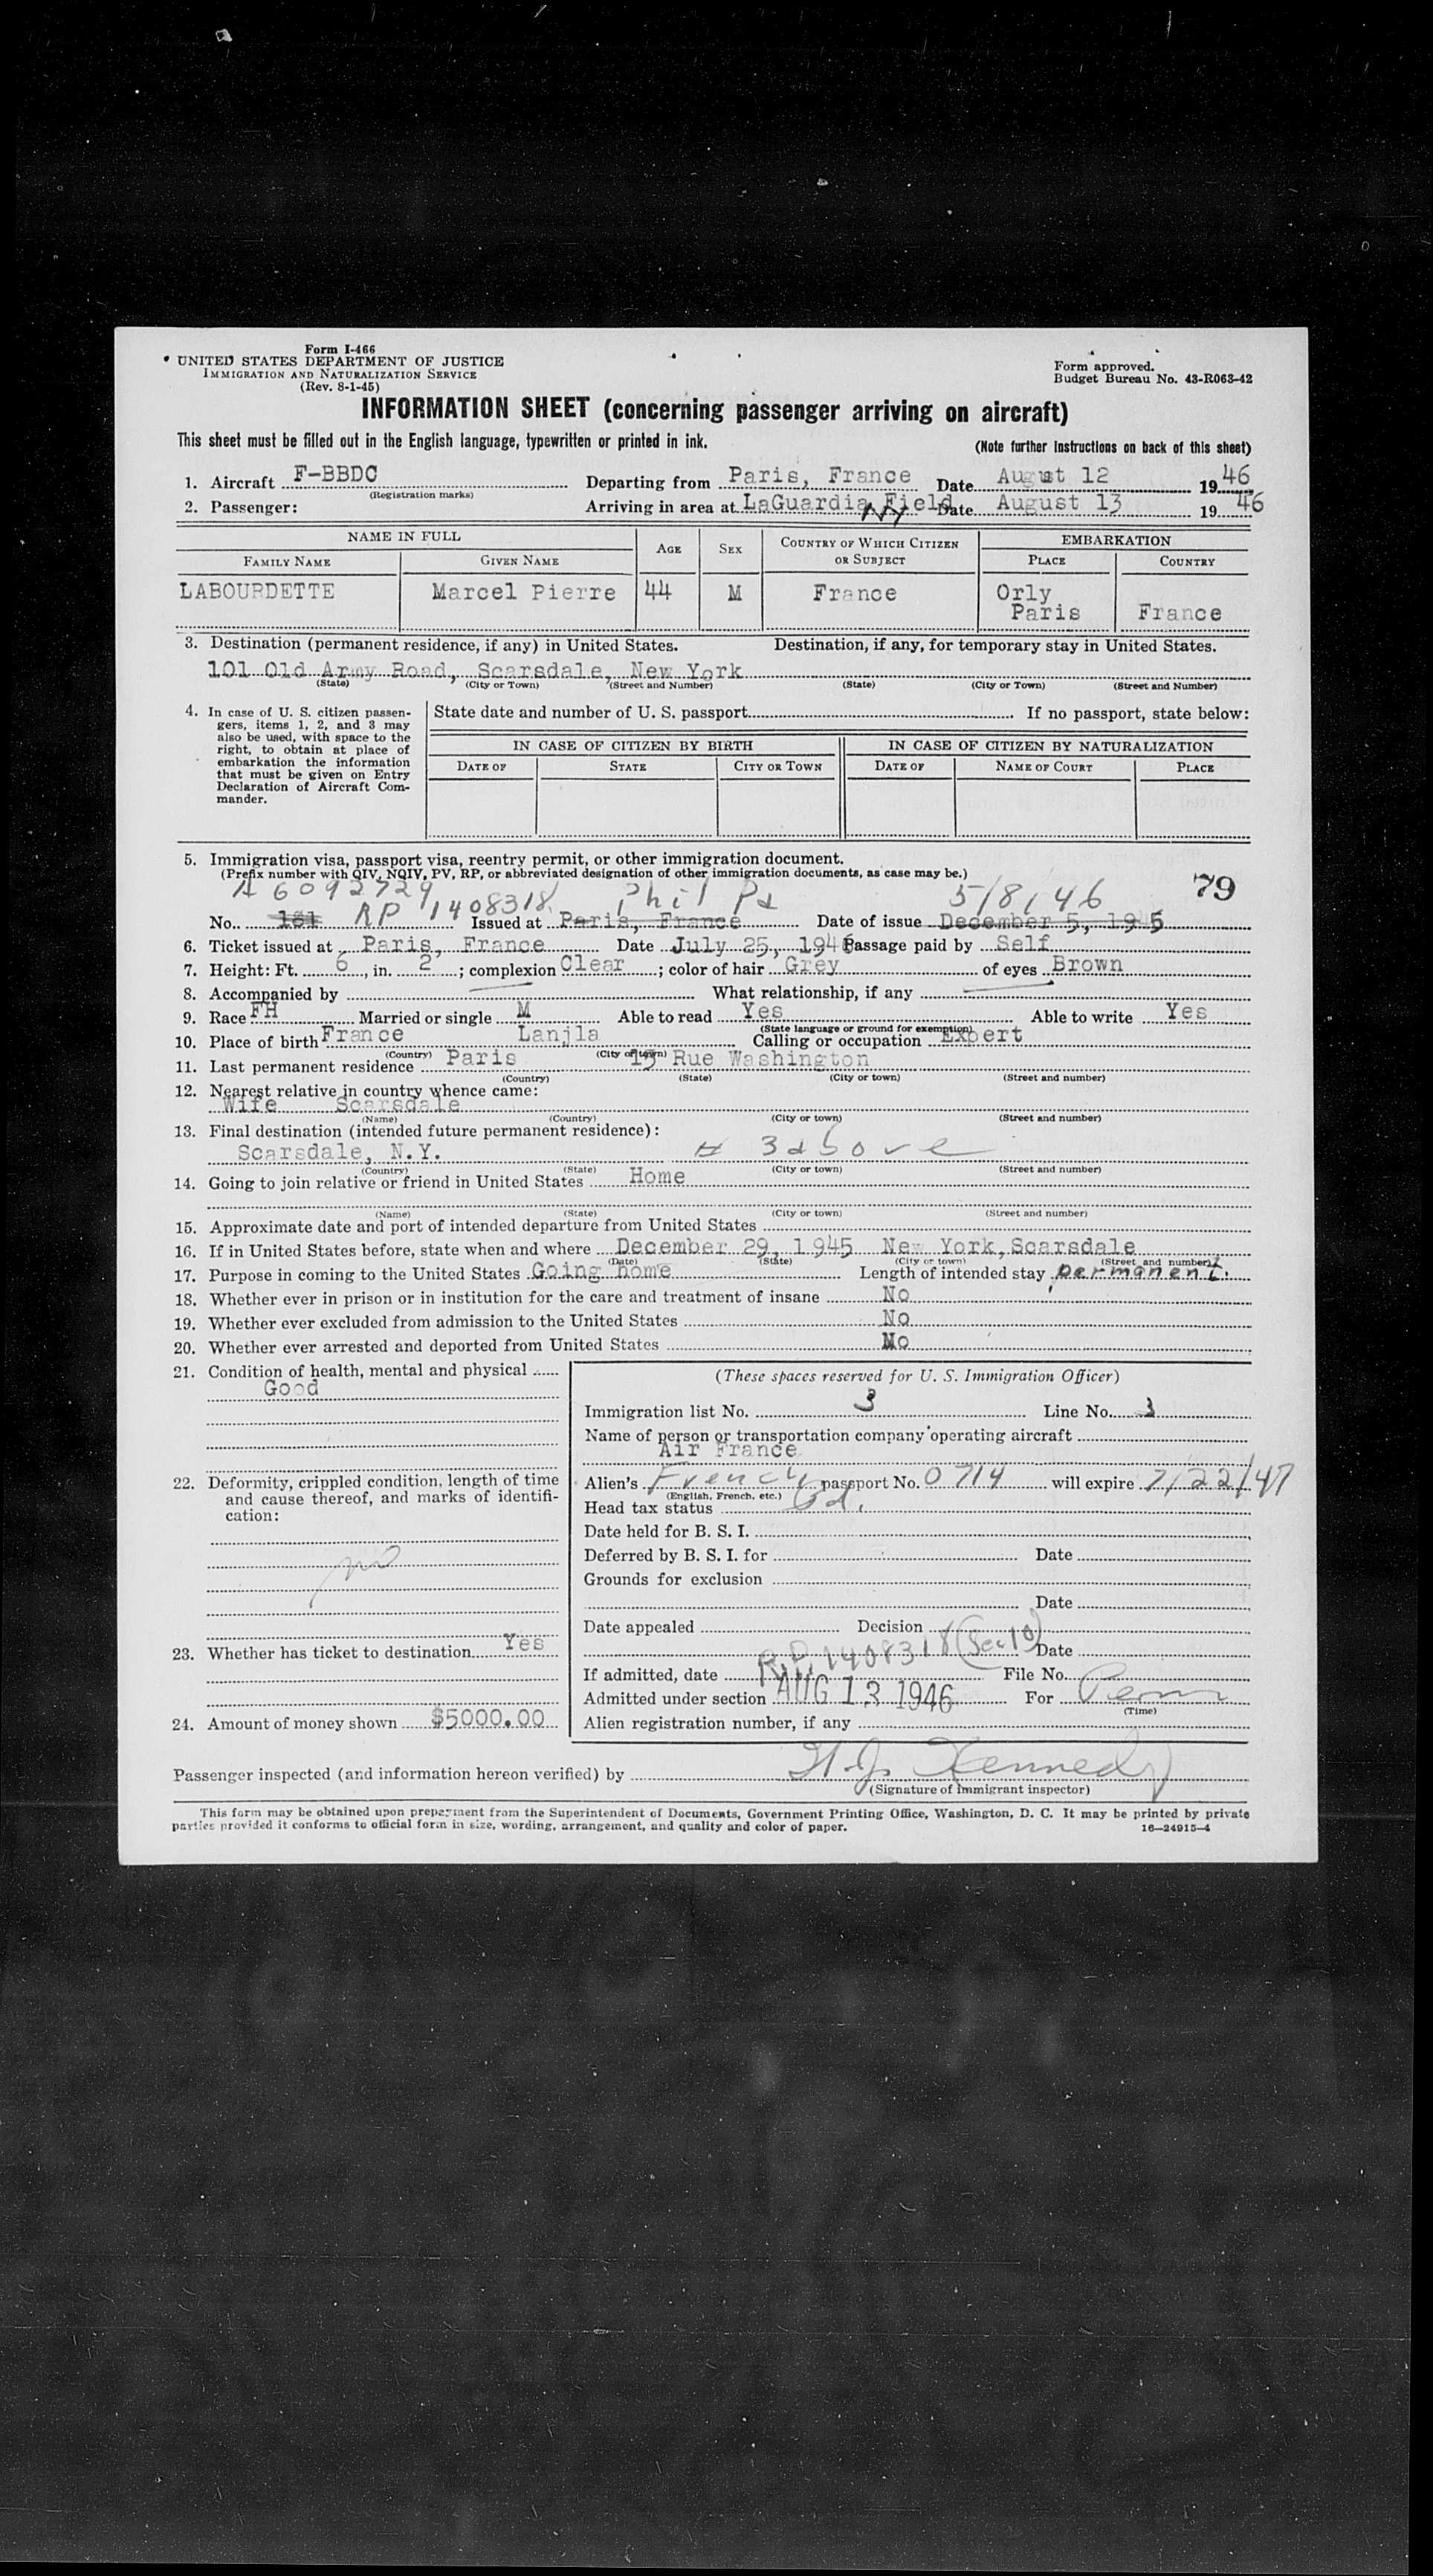 Form I-466
UNITED STATES DEPARTMENT OF JUSTICE
IMMIGRATION AND NATURALIZATION SERVICE
(Rev. 8-1-45)
Form approved.
Budget Bureau No. 43-R063-42
INFORMATION SHEET (concerning passenger arriving on aircraft)
This sheet must be filled out in the English language, typewritten or printed in ink.
(Note further instructions on back of this sheet)
1. Aircraft F-BBDC Departing from Paris, France Date August 12 1946
(Registration marks)
2. Passenger: Arriving in area at LaGuardia Field NY Date August 13 1946
NAME IN FULL AGE SEX COUNTRY OF WHICH CITIZEN OR SUBJECT EMBARKATION
FAMILY NAME GIVEN NAME PLACE COUNTRY
LABOURDETTE Marcel Pierre 44 M France Orly
Paris France
3. Destination (permanent residence, if any) in United States. Destination, if any, for temporary stay in United States.
101 Old Army Road, Scarsdale, New York
(State) (City or Town) (Street and Number) (State) (City or Town) (Street and Number)
4. In case of U. S. citizen passen-
gers, items 1, 2, and 3 may
also be used, with space to the
right, to obtain at place of
embarkation the information
that must be given on Entry
Declaration of Aircraft Com-
mander.
State date and number of U. S. passport If no passport, state below:
IN CASE OF CITIZEN BY BIRTH IN CASE OF CITIZEN BY NATURALIZATION
DATE OF STATE CITY OR TOWN DATE OF NAME OF COURT PLACE
5. Immigration visa, passport visa, reentry permit, or other immigration document.
(Prefix number with QIV, NQIV, PV, RP, or abbreviated designation of other immigration documents, as case may be.)
A 6092729 Phil Pa 5/8/46 79
No. 181 RP 1408318 Issued at Paris, France Date of issue December 5, 1945
6. Ticket issued at Paris, France Date July 25, 1946 Passage paid by Self
7. Height: Ft. 6, in. 2; complexion Clear; color of hair Grey of eyes Brown
8. Accompanied by What relationship, if any
9. Race FH Married or single M Able to read Yes Able to write Yes
(State language or ground for exemption)
10. Place of birth France Lanjla Calling or occupation Expert
(Country) (City or town)
11. Last permanent residence Paris 15 Rue Washington
(Country) (State) (City or town) (Street and number)
12. Nearest relative in country whence came:
Wife Scarsdale
(Name) (Country) (City or town) (Street and number)
13. Final destination (intended future permanent residence):
Scarsdale, N.Y. # 3 above
(Country) (State) (City or town) (Street and number)
14. Going to join relative or friend in United States Home
(Name) (State) (City or town) (Street and number)
15. Approximate date and port of intended departure from United States
16. If in United States before, state when and where December 29, 1945 New York, Scarsdale
(Date) (State) (City or town) (Street and number)
17. Purpose in coming to the United States Going home Length of intended stay permanent.
18. Whether ever in prison or in institution for the care and treatment of insane No
19. Whether ever excluded from admission to the United States No
20. Whether ever arrested and deported from United States No
21. Condition of health, mental and physical
Good
22. Deformity, crippled condition, length of time
and cause thereof, and marks of identifi-
cation:
no
23. Whether has ticket to destination Yes
24. Amount of money shown $5000.00
(These spaces reserved for U. S. Immigration Officer)
Immigration list No. 3 Line No. 3
Name of person or transportation company operating aircraft
Air France
Alien's French passport No. 0714 will expire 7/22/47
(English, French, etc.)
Head tax status Pd.
Date held for B. S. I.
Deferred by B. S. I. for Date
Grounds for exclusion
Date
Date appealed Decision
R.P. 1408318 (Sec 10) Date
If admitted, date File No.
Admitted under section AUG 13 1946 For Perm
(Time)
Alien registration number, if any
Passenger inspected (and information hereon verified) by H. J. Kennedy
(Signature of immigrant inspector)
This form may be obtained upon prepayment from the Superintendent of Documents, Government Printing Office, Washington, D. C. It may be printed by private
parties provided it conforms to official form in size, wording, arrangement, and quality and color of paper. 16—24915-4